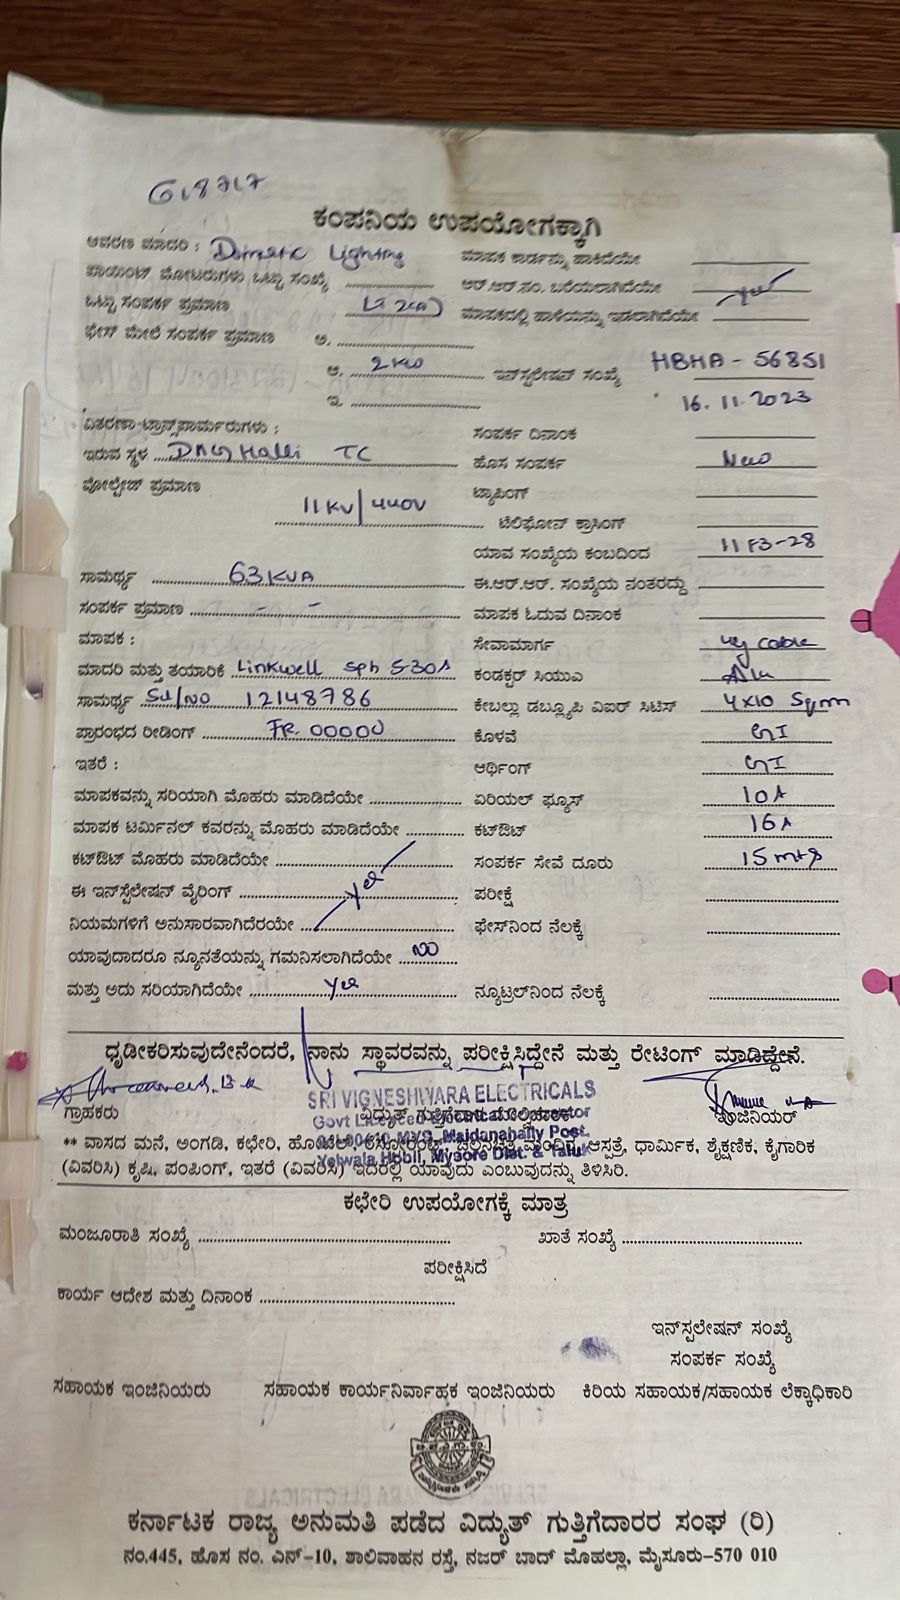 618717
ಕಂಪನಿಯ ಉಪಯೋಗಕ್ಕಾಗಿ
ಆವರಣ ಮಾದರಿ : Lighting ಮಾಪಕ ಕಾರ್ಡನ್ನು ಹಾಕಿದೆಯೇ
ಪಾಯಿಂಟ್ ಮೋಟರುಗಳು ಒಟ್ಟು ಸಂಖ್ಯೆ ಆರ್.ಆರ್.ಸಂ. ಬರೆಯಲಾಗಿದೆಯೇ
ಒಟ್ಟು ಸಂಪರ್ಕ ಪ್ರಮಾಣ ಮಾಪಕದಲ್ಲಿ ಹಾಳೆಯನ್ನು ಇಡಲಾಗಿದೆಯೇ
ಫೇಸ್ ಮೇಲೆ ಸಂಪರ್ಕ ಪ್ರಮಾಣ ಅ.
ಆ. 2KW ಇನ್‌ಸ್ಟಲೇಷನ್ ಸಂಖ್ಯೆ HBHA - 56851
ಇ. 16.11.2023
ವಿತರಣಾ ಟ್ರಾನ್ಸ್‌ಫಾರ್ಮರುಗಳು : ಸಂಪರ್ಕ ದಿನಾಂಕ
ಇರುವ ಸ್ಥಳ Halli TC ಹೊಸ ಸಂಪರ್ಕ New
ವೋಲ್ಟೇಜ್ ಪ್ರಮಾಣ ಟ್ಯಾಪಿಂಗ್
11KV/440V ಟೆಲಿಫೋನ್ ಕ್ರಾಸಿಂಗ್
ಯಾವ ಸಂಖ್ಯೆಯ ಕಂಬದಿಂದ 11F3-28
ಸಾಮರ್ಥ್ಯ 63KVA ಈ.ಆರ್.ಆರ್. ಸಂಖ್ಯೆಯ ನಂತರದ್ದು
ಸಂಪರ್ಕ ಪ್ರಮಾಣ - - ಮಾಪಕ ಓದುವ ದಿನಾಂಕ
ಮಾಪಕ : ಸೇವಾಮಾರ್ಗ cable
ಮಾದರಿ ಮತ್ತು ತಯಾರಿಕೆ Linkwell Sph 5-30A ಕಂಡಕ್ಟರ್ ಸಿಯುಎ Alu
ಸಾಮರ್ಥ್ಯ Sl/No 12148786 ಕೇಬಲ್ಲು ಡಬ್ಲ್ಯೂಪಿ ವಿಐಆರ್ ಸಿಟಿಸ್ 4x10 Sqmm
ಪ್ರಾರಂಭದ ರೀಡಿಂಗ್ FR. 00000 ಕೊಳವೆ GI
ಇತರೆ : ಆರ್ಥಿಂಗ್ GI
ಮಾಪಕವನ್ನು ಸರಿಯಾಗಿ ಮೊಹರು ಮಾಡಿದೆಯೇ ಏರಿಯಲ್ ಫ್ಯೂಸ್ 10A
ಮಾಪಕ ಟರ್ಮಿನಲ್ ಕವರನ್ನು ಮೊಹರು ಮಾಡಿದೆಯೇ ಕಟ್‌ಔಟ್ 16A
ಕಟ್‌ಔಟ್ ಮೊಹರು ಮಾಡಿದೆಯೇ ಸಂಪರ್ಕ ಸೇವೆ ದೂರು 15mts
ಈ ಇನ್‌ಸ್ಟೆಲೇಷನ್ ವೈರಿಂಗ್ Yes ಪರೀಕ್ಷೆ
ನಿಯಮಗಳಿಗೆ ಅನುಸಾರವಾಗಿದೆರಯೇ ಫೇಸ್‌ನಿಂದ ನೆಲಕ್ಕೆ
ಯಾವುದಾದರೂ ನ್ಯೂನತೆಯನ್ನು ಗಮನಿಸಲಾಗಿದೆಯೇ NO
ಮತ್ತು ಅದು ಸರಿಯಾಗಿದೆಯೇ Yes ನ್ಯೂಟ್ರಲ್‌ನಿಂದ ನೆಲಕ್ಕೆ
ಧೃಡೀಕರಿಸುವುದೇನೆಂದರೆ, ನಾನು ಸ್ಥಾವರವನ್ನು ಪರೀಕ್ಷಿಸಿದ್ದೇನೆ ಮತ್ತು ರೇಟಿಂಗ್ ಮಾಡಿದ್ದೇನೆ.
SRI VIGNESHWARA ELECTRICALS
ಗ್ರಾಹಕರು ವಿದ್ಯುತ್ ಗುತ್ತಿಗೆದಾರ ಮೇಲ್ವಿಚಾರಕ ಇಂಜಿನಿಯರ್
Govt Licenced Electrical Contractor
Maidanahally Post,
Yelwala Hobli, Mysore Dist. & Taluk
** ವಾಸದ ಮನೆ, ಅಂಗಡಿ, ಕಛೇರಿ, ಆಸ್ಪತ್ರೆ, ಧಾರ್ಮಿಕ, ಶೈಕ್ಷಣಿಕ, ಕೈಗಾರಿಕೆ
(ವಿವರಿಸಿ) ಕೃಷಿ, ಪಂಪಿಂಗ್, ಇತರೆ (ವಿವರಿಸಿ) ಇದರಲ್ಲಿ ಯಾವುದು ಎಂಬುವುದನ್ನು ತಿಳಿಸಿರಿ.
ಕಛೇರಿ ಉಪಯೋಗಕ್ಕೆ ಮಾತ್ರ
ಮಂಜೂರಾತಿ ಸಂಖ್ಯೆ ಖಾತೆ ಸಂಖ್ಯೆ
ಪರೀಕ್ಷಿಸಿದೆ
ಕಾರ್ಯ ಆದೇಶ ಮತ್ತು ದಿನಾಂಕ
ಇನ್‌ಸ್ಪಲೇಷನ್ ಸಂಖ್ಯೆ
ಸಂಪರ್ಕ ಸಂಖ್ಯೆ
ಸಹಾಯಕ ಇಂಜಿನಿಯರು ಸಹಾಯಕ ಕಾರ್ಯನಿರ್ವಾಹಕ ಇಂಜಿನಿಯರು ಕಿರಿಯ ಸಹಾಯಕ/ಸಹಾಯಕ ಲೆಕ್ಕಾಧಿಕಾರಿ
ಕರ್ನಾಟಕ ರಾಜ್ಯ ಅನುಮತಿ ಪಡೆದ ವಿದ್ಯುತ್ ಗುತ್ತಿಗೆದಾರರ ಸಂಘ (ರಿ)
ನಂ.445, ಹೊಸ ನಂ. ಎನ್-10, ಶಾಲಿವಾಹನ ರಸ್ತೆ, ನಜರ್ ಬಾದ್ ಮೊಹಲ್ಲಾ, ಮೈಸೂರು-570 010